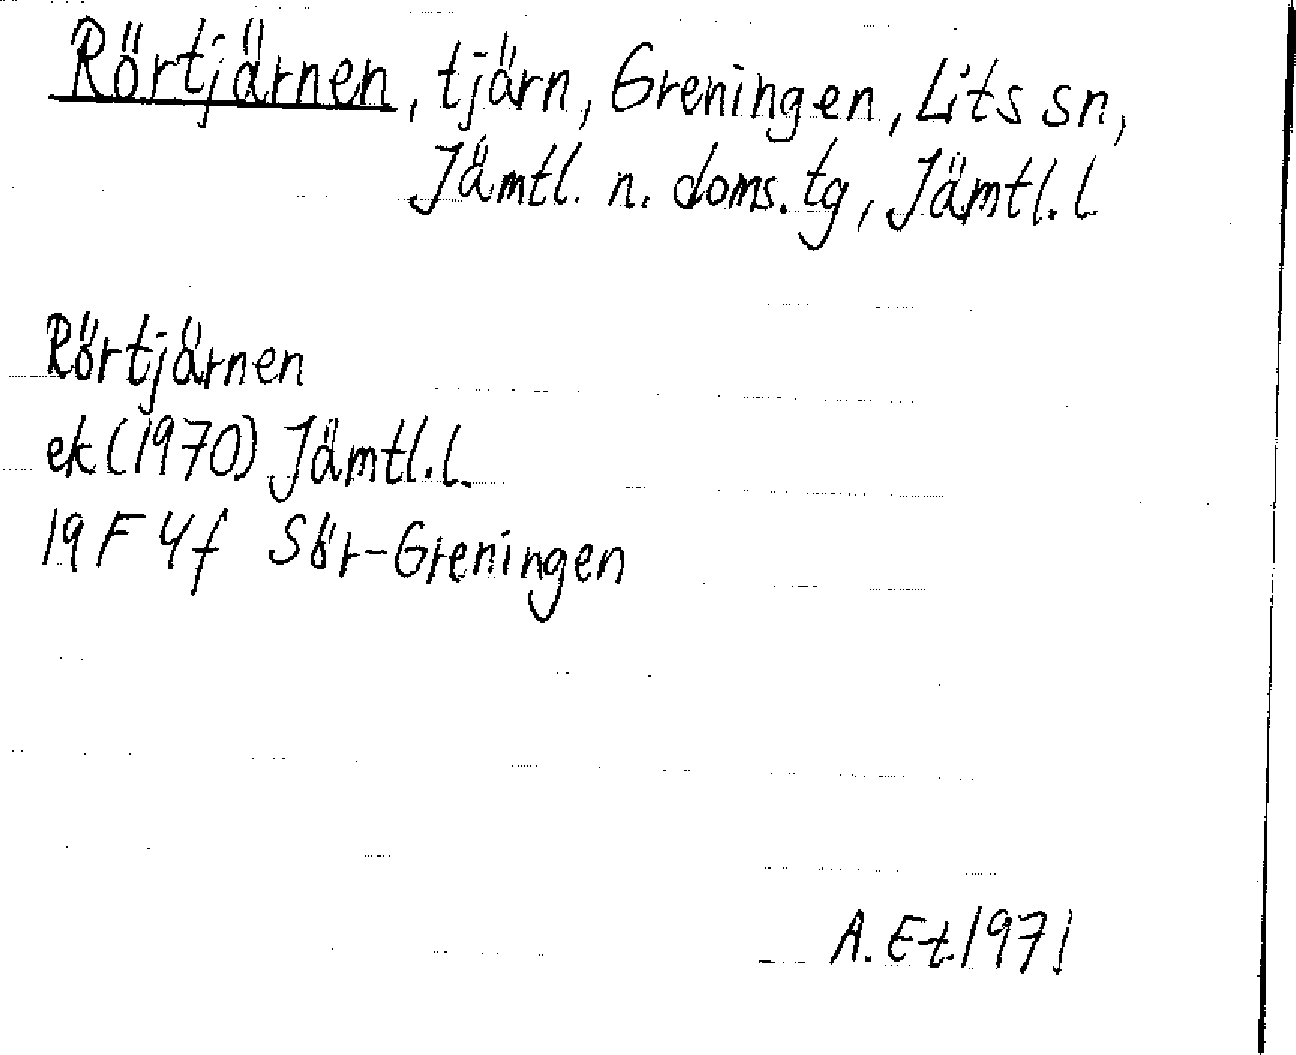 Rörtjärnen, tjärn, Greningen, Lits sn,
Jämtl. n. doms. tg, Jämtl. l.
Rörtjärnen
ek (1970) Jämtl. l.
19 F 4f Sör-Greningen
A. Et. 1971